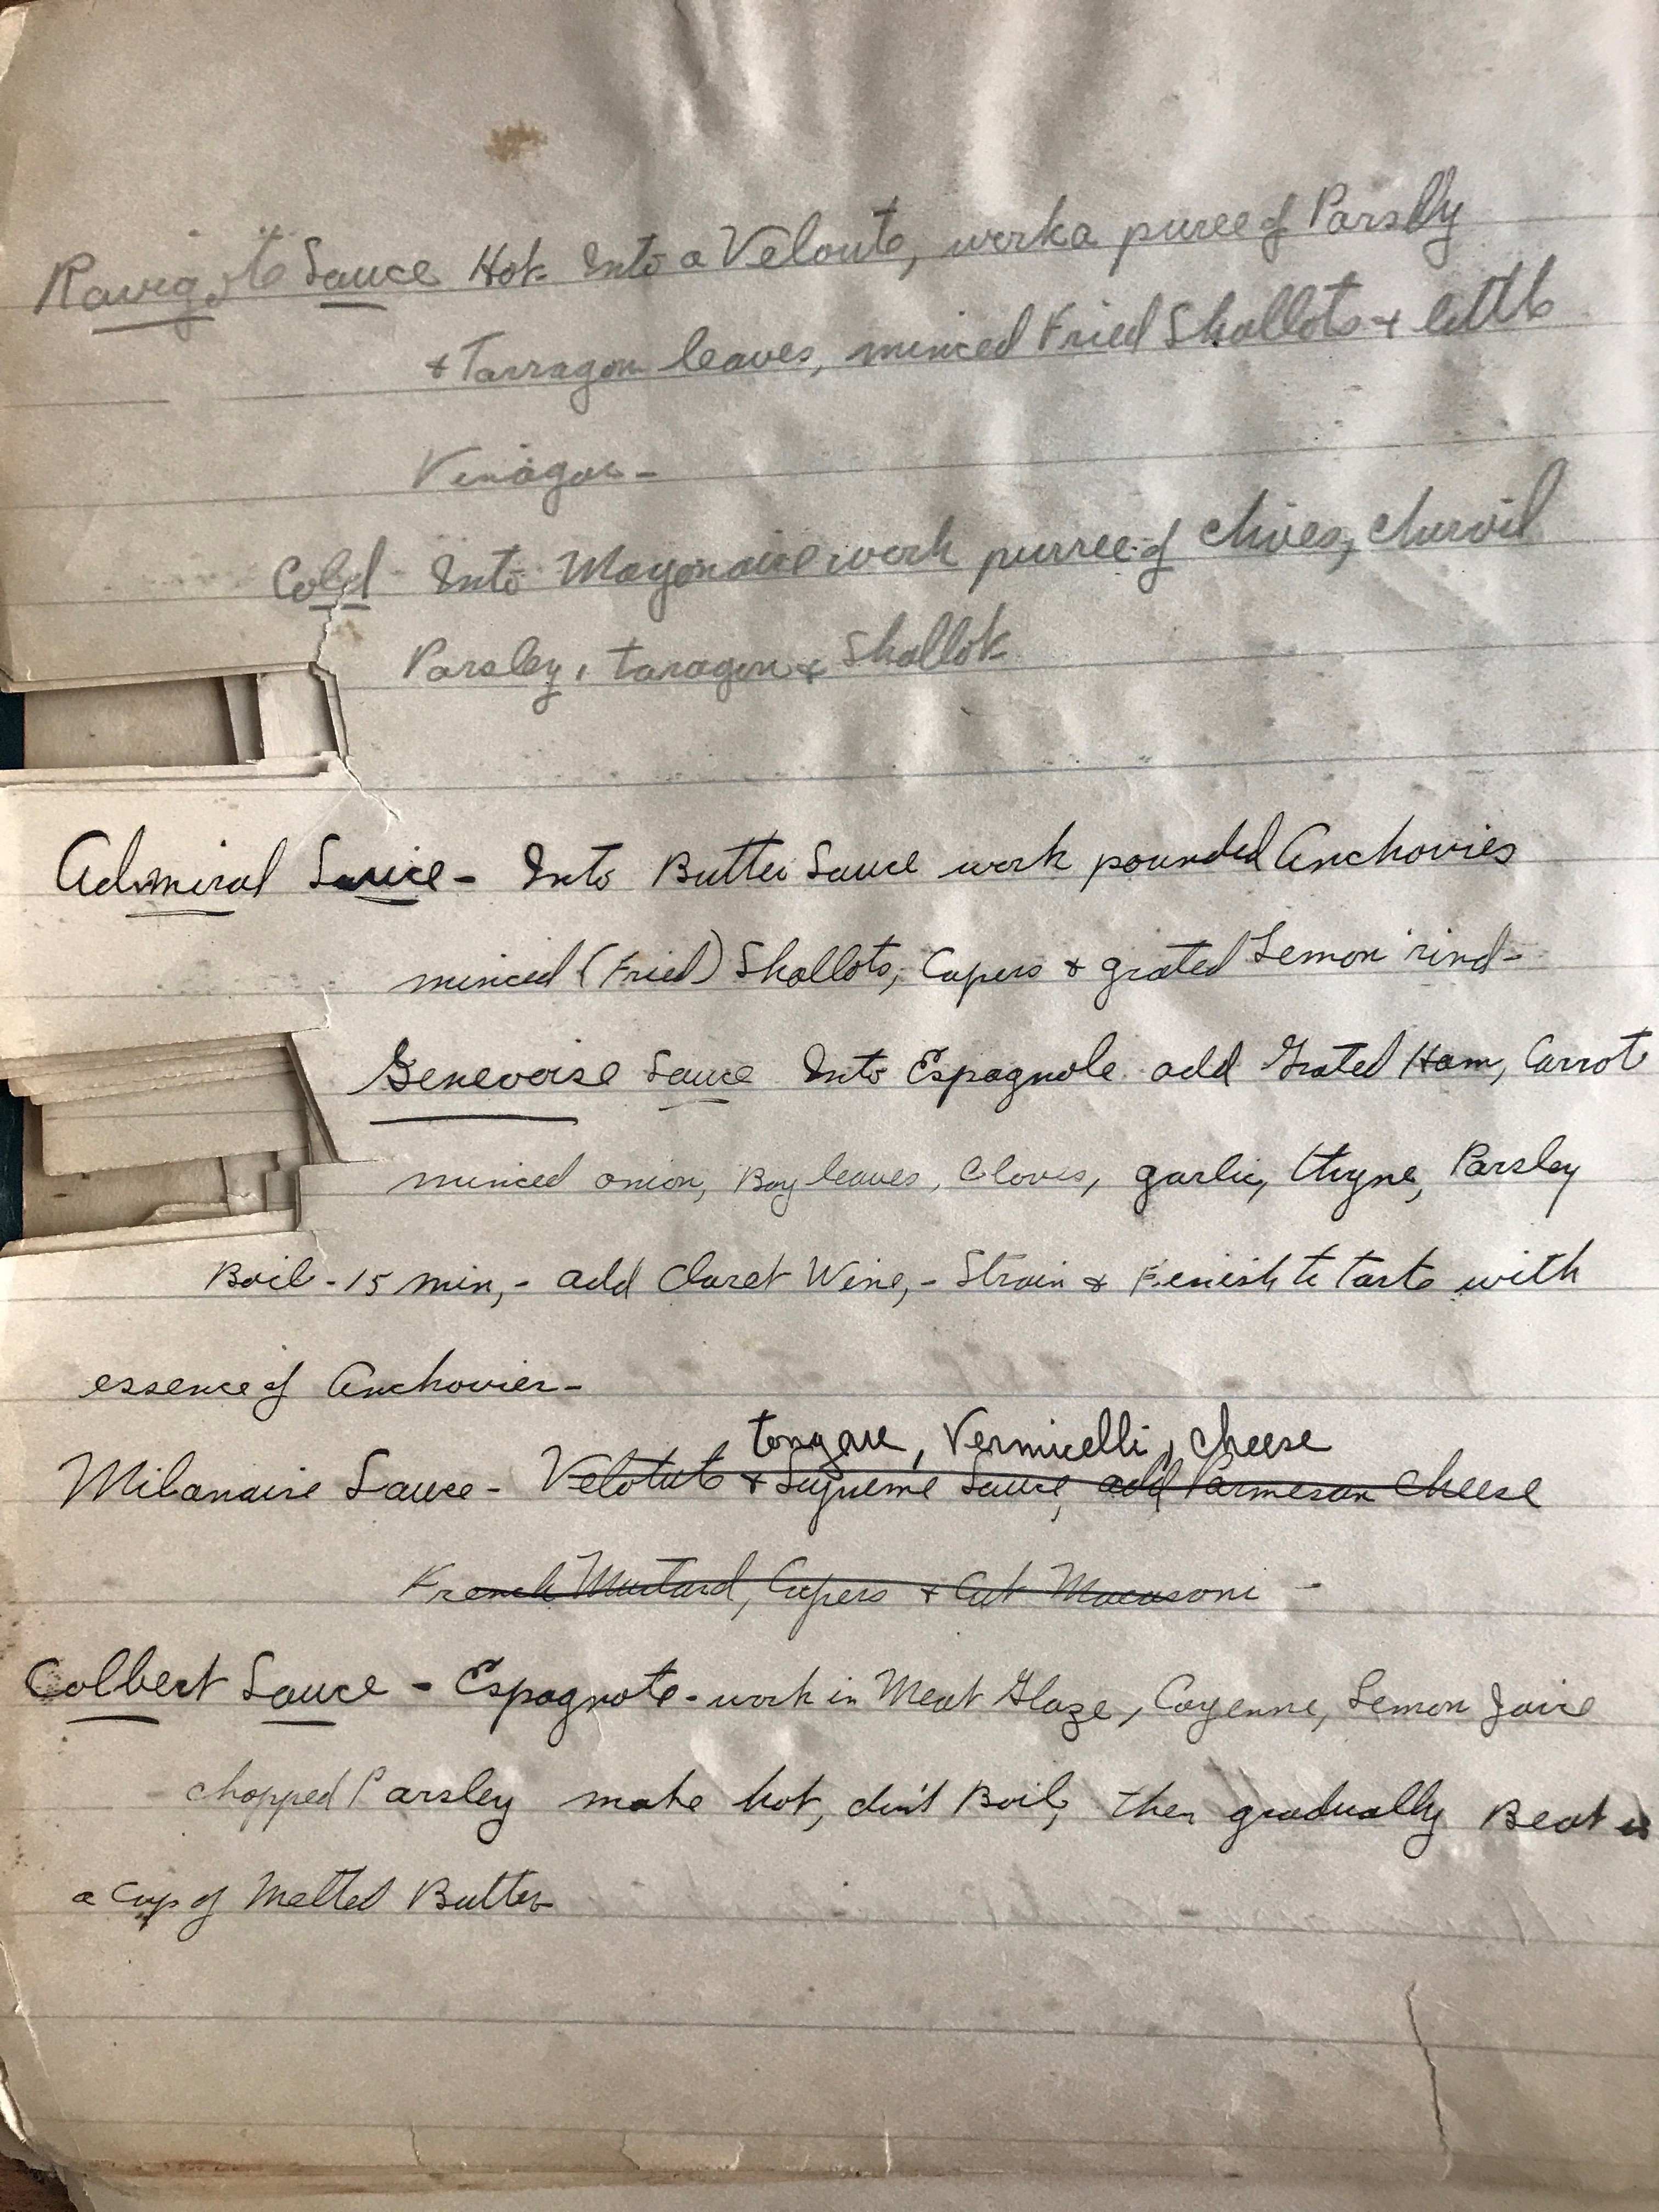 Ravigote Sauce Hot- Into a Veloute, work a puree of Parsely
+ Tarragon leaves, minced Fried Shallots + little
Vinagar-
Cold- Into Mayonaise work purree of Chives, Chervil
Parsley, taragon + Shallot
Admiral Sauce- Into Butter Sauce work pounded Anchovies
minced (Fried) Shallots, Capers + grated Lemon rind-
Genevoise Sauce Into Espagnole add Grated Ham, Carrot
minced onion, Bay leaves, Cloves, garlic, thyme, Parsley
Boil-15 min,- add Claret Wine,- Strain + Finish to taste with
essence of Anchovies-
tongue, Vermicelli, cheese
Milanaise Sauce- Veloute + Supreme Sauce, add Parmesan Cheese
French Mustard, Capers + Cut Macaroni -
Colbert Sauce - Espagnole- work in Meat Glaze, Cayenne, Lemon Juice
chopped Parsley make hot, dint Boil, then gradually Beat in
a Cup of Melted Butter